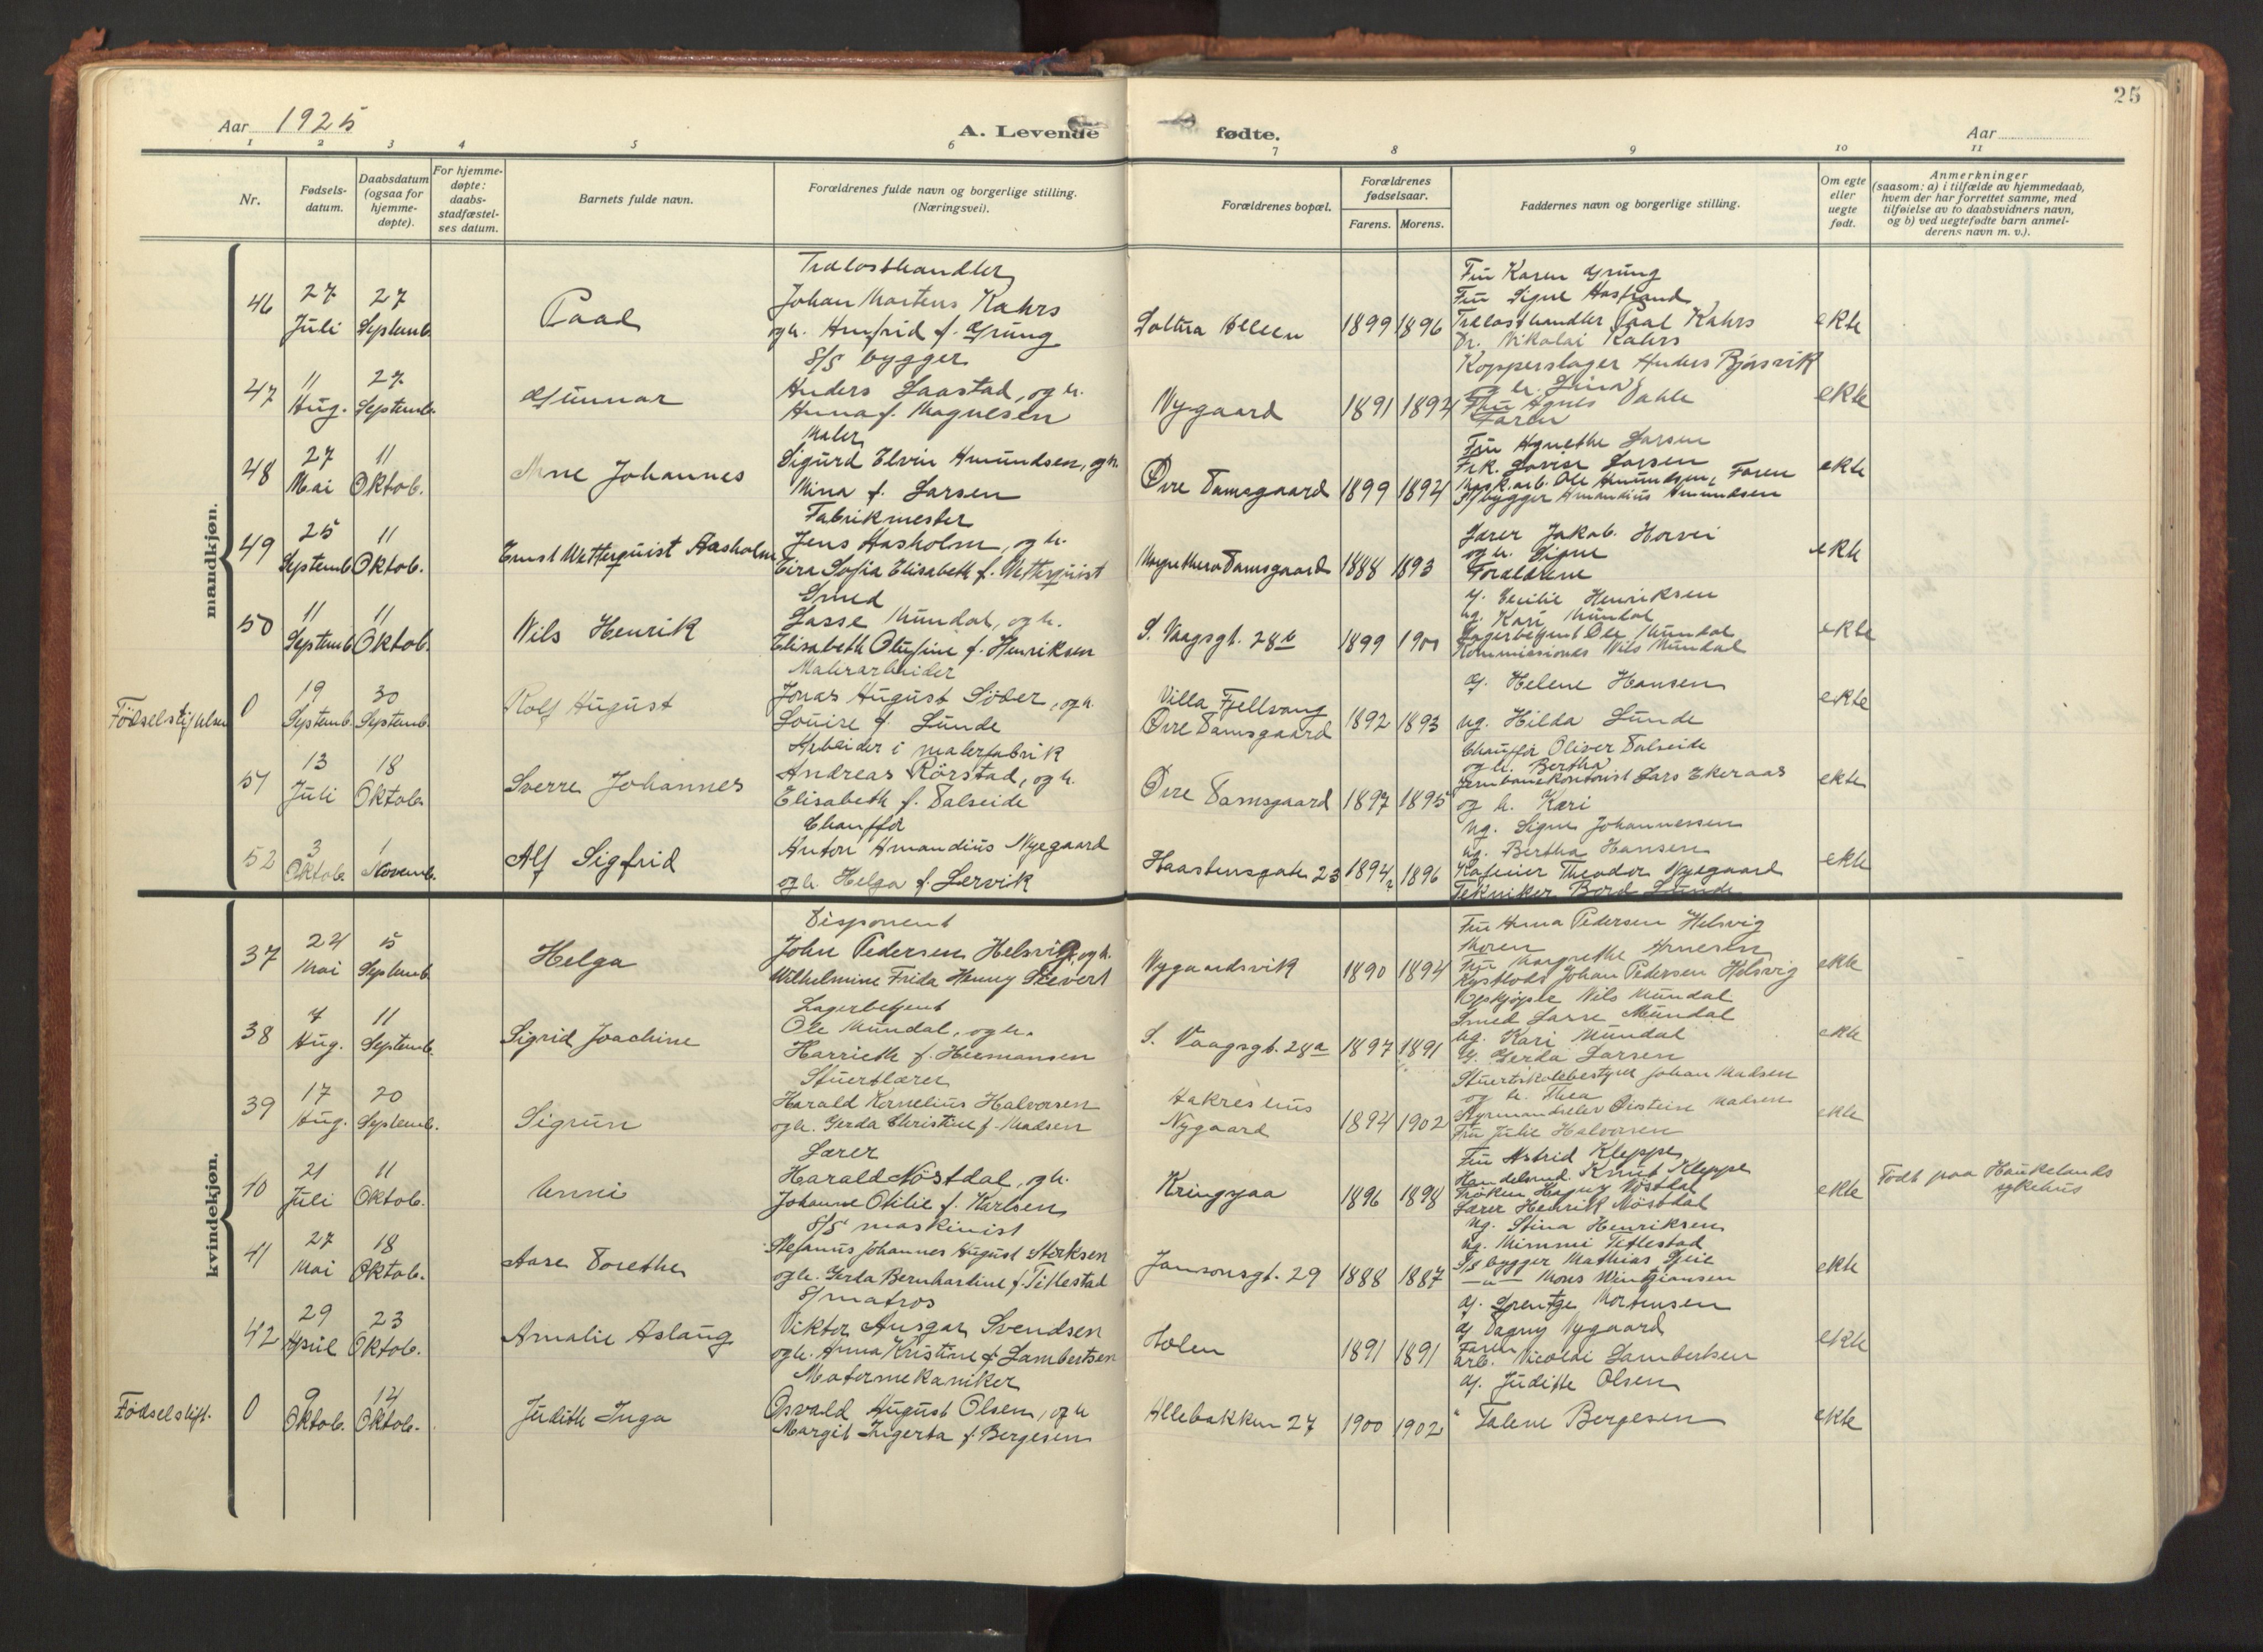 25
Aar 1925
A. Levende fødte.
Aar
1 2 3 4 5 6 7 8 9 10 11
Nr.
Fødsels-
datum.
Daabsdatum
(ogsaa for
hjemme-
døpte).
For hjemme-
døpte:
daabs-
stadfæstel-
ses datum.
Barnets fulde navn.
Forældrenes fulde navn og borgerlige stilling.
(Næringsvei).
Forældrenes bopæl.
Forældrenes
fødselsaar.
Farens. Morens.
Faddernes navn og borgerlige stilling.
Om egte
eller
uegte
født.
Anmerkninger
(saasom: a) i tilfælde av hjemmedaab,
hvem der har forrettet samme, med
tilføielse av to daabsvidners navn,
og b) ved uegtefødte barn anmel-
derens navn m. v.).
mandkjøn.
46
27
Juli
27
Septemb.
Trælasthandler
Johan Martens Kahrs
og h. f. Grung
1899 1896
Fru Karen Grung
Fru Signe
Trælasthandler Paal Kahrs
Dr. Nikolai Kahrs
ekte
47
11
Aug.
27
Septemb.
Gunnar
S/S bygger
Anders Laastad, og h.
Anna f. Magnesen
Nygaard
1891 1894
Kopperslager Anders Bjørsvik
og h.
Fru Agnes Dahle
Faren
ekte
48
27
Mai
11
Oktob.
Arne Johannes
Maler
Sigurd Elvin Amundsen, og h.
Mina f. Larsen
Øvre Damsgaard
1899 1894
Fru Agnethe Larsen
Frk. Lovise Larsen
Mask.arb. Ole Amundsen, Faren
S/S bygger Amandius Amundsen
ekte
49
25
Septemb.
11
Oktob.
Ernst Wetterquist Aasholm
Fabrikmester
Jens Aasholm, og h.
Eira Sofia Elisabeth f. Wetterquist
Damsgaard
1888 1893
Lærer Jakob
og h. Signe
Forældrene
ekte
50
11
Septemb.
11
Oktob.
Nils Henrik
Smed
Lasse Mundal, og h.
Elisabeth f. Henriksen
S. Vaagsgt. 28b
1899
G. Cecilie Henriksen
ug. Kari Mundal
Lagerbetjent Ole Mundal
Nils Mundal
ekte
0
19
Septemb.
30
Septemb.
Rolf August
Malerarbeider
Jonas August Söder, og h.
Louise f. Lunde
Villa Fjellvang
Øvre Damsgaard
1892 1893
G. Helene Hansen
ug. Hilda Lunde
ekte
51
13
Juli
18
Oktob.
Sverre Johannes
Arbeider i malerfabrik
Andreas Rörstad, og h.
Elisabeth f. Dalseide
Øvre Damsgaard
1897 1895
Chauffør Oliver Dalseide
og h. Bertha
Jernbanekontorist Lars Ekeraas
og h. Kari
ekte
52
3
Oktob.
1
Novemb.
Alf Sigfrid
Chauffør
Anton Amandius Nygaard
og h. Helga f. Lervik
Haastensgate 23
1894 1896
ug. Signe Johannessen
ug. Bertha Hansen
Theodor Nygaard
Tekniker Bord Lunde
ekte
kvindekjøn.
37
24
Mai
5
Septemb.
Helga
Disponent
John Pedersen Helsvig, og h.
Wilhelmine Frida Henny Sievert
Nygaardsvik
1890 1894
Fru Anna Pedersen Helsvig
Moren
Fru Margrethe Arnesen
Kystlods Johan Pedersen Helsvig
ekte
38
4
Aug.
11
Septemb.
Sigrid Joachine
Lagerbetjent
Ole Mundal, og h.
Harrieth f. Hermansen
S. Vaagsgt. 28a
1897 1891
Nils Mundal
Smed Lasse Mundal
ug. Kari Mundal
G. Gerda Larsen
ekte
39
17
Aug.
20
Septemb.
Sigrun
Stuertlærer
Harald Kornelius Halvorsen
og h. Gerda Christine f. Madsen
Nygaard
1894 1902
Stuertskolebestyrer Johan Madsen
og h. Thea
Styrmandselev Øistein Madsen
Fru Julie Halvorsen
ekte
40
21
Juli
11
Oktob.
Unni
Lærer
Harald Nöstdal, og h.
Johanne Otilie f. Karlsen
Kringsjaa
1896 1898
Fru Astrid Kleppe
Handelsmd. Knut Kleppe
Frøken Nöstdal
Lærer Henrik Nöstdal
ekte
Født paa Haukelands
sykehus
41
27
Mai
18
Oktob.
Aase Dorethe
S/S maskinist
Stefanus Johannes August Sterksen
og h. Gerda Bernhardine f. Titlestad
Jansonsgt. 29
1888 1887
ug. Stina Henriksen
ug. Mimmi Titlestad
S/S bygger Mathias
Mons
ekte
42
29
April
23
Oktob.
Amalie Aslaug
S/matros
Viktor Ansgar Svendsen
og h. Anna Kristine f. Lambertsen
Holen
1891 1891
G. Mortensen
G. Dagny Nygaard
Faren
arb. Nicolai Lambertsen
ekte
Fødselstift.
0
9
Oktob.
14
Oktob.
Judith Inga
Motormekaniker
Osvald August Olsen, og h.
Margit Ingerta f. Bergesen
Allebakken 27
1900 1902
G. Judithe Olsen
" Talene Bergesen
ekte